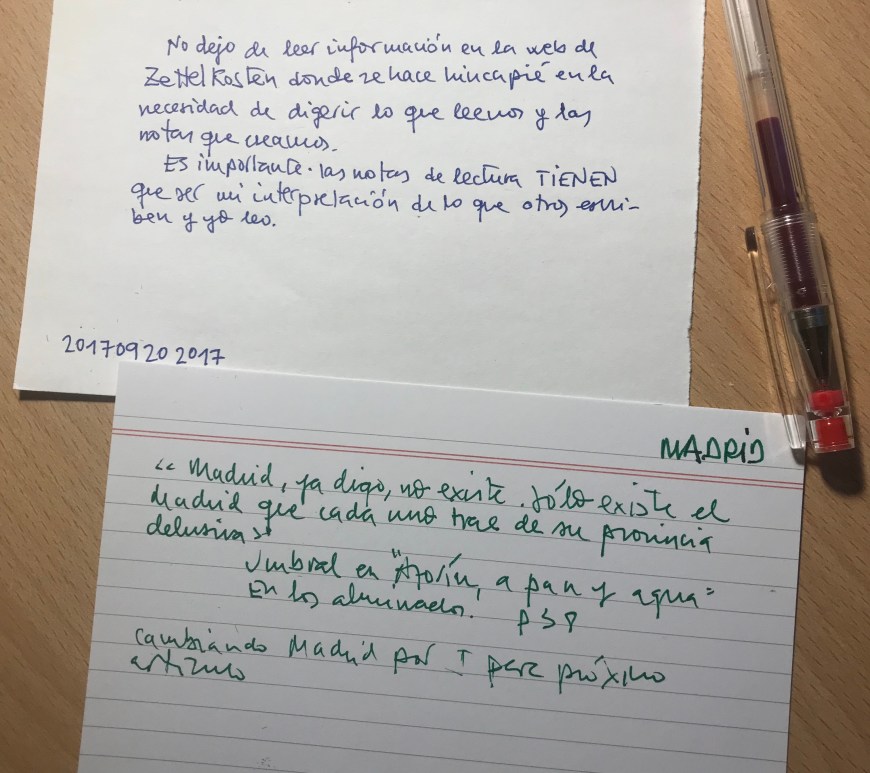 No dejo de leer información en la web de
Zettelkasten donde se hace hincapié en la
necesidad de digerir lo que leemos y las
notas que creamos.
Es importante. las notas de lectura TIENEN
que ser mi interpretación de lo que otros escri-
ben y yo leo.
20170920 2017
MADRID
<< Madrid, ya digo, no existe. Sólo existe el
Madrid que cada uno trae de su provincia
delusiva >>
Umbral en "Azorín, a pan y agua"
En los alucinados. P
cambiando Madrid por T para próximo
artículo